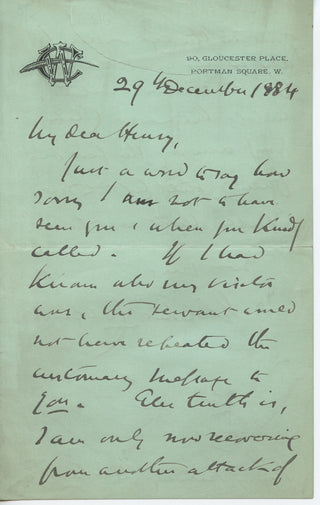 90, GLOUCESTER PLACE,
PORTMAN SQUARE, W.
29th December 1884
My dear Henry,
Just a word to say how
sorry I am not to have
seen you when you kindly
called. If I had
known who my visitor
was, the servant would
not have repeated the
customary message to
you. The truth is,
I am only now recovering
from another attack of